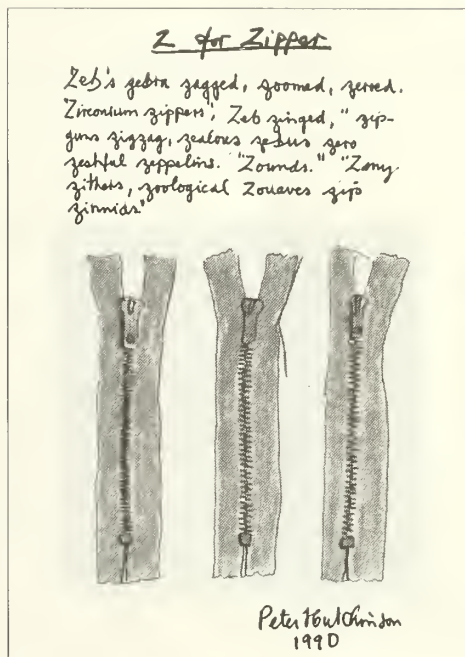 Z for Zipper
Zeb's zebra zagged, zoomed, zerred.
"Zirconium zippers", Zeb zinged, "zip-
guns zigzag, zealous zebus zero
zestful zeppelins. "Zounds." "Zany
zithers, zoological Zouaves zip
zinnias"
Peter Hutchinson
1990